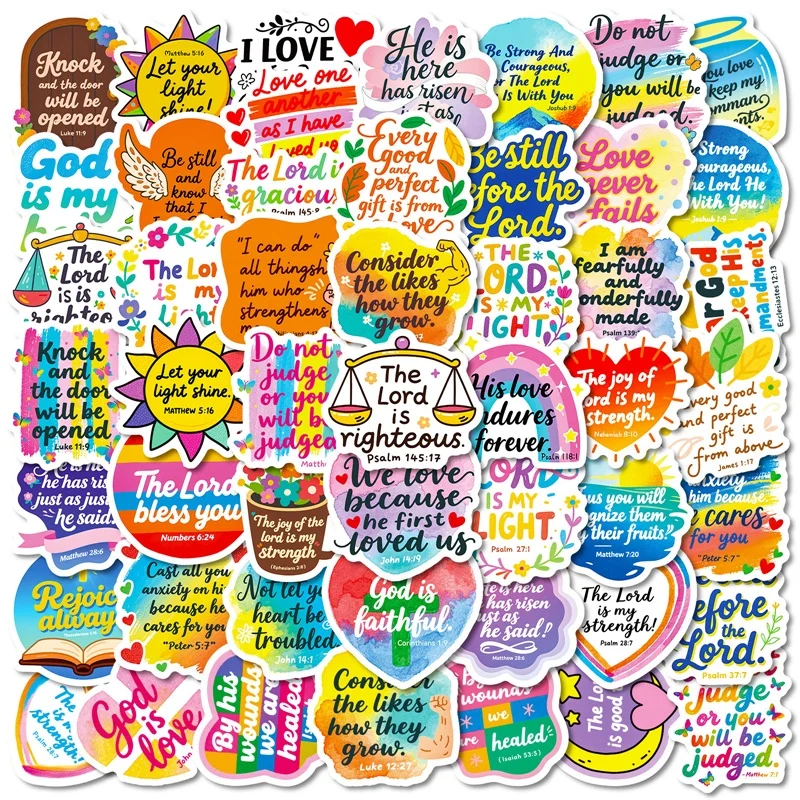 Knock
and the door
will be
opened
Luke 11:9
Matthew 5:16
Let your
light
shine!
I LOVE
Love one
another
as I have
loved us
He is
here
has risen
just as
Be Strong And
Courageous,
For The Lord
Is With You
Joshub 1:9
Do not
judge or
you will be
judged.
you love
keep my
God
is my
Be still
and
know
that I
The Lord i
gracious
Psalm 145:8
Every
Good
and
perfect
gift is from
Be still
before the
Lord.
Love
never
fails
Strong
Courageous,
The Lord He
With You!
Joshub 1:9
The
Lord
is is
The Lor
is my
"I can do"
all thingsh
him who
strengthens
Consider
the likes
how they
grow.
THE
LORD
IS MY
LIGHT
I am
fearfully
and
wonderfully
made
Psalm 139:
God
keep His
mandments,
Ecclesiastes 12:13
Knock
and
the door
will be
opened
Luke 11:9
Let your
light shine.
MATTHEW 5:16
Do not
judge
or you
will be
judged
Matth
The
Lord
is
righteous.
Psalm 145:17
His love
endures
forever.
Psalm 118:1
The joy of
lord is my
strength.
Nehemiah 8:10
every good
and perfect
gift is
from above
James 1:17
he has risen
just as just
he said.
Matthew 28:6
The Lord
bless you
Numbers 6:24
The joy of the
lord is my
strength
(Ephesians 2:8)
We love
because
he first
loved us
John 14:19
LORD
IS MY
LIGHT
Psalm 27:1
us you will
gnize them
their fruits."
Matthew 7:20
anxiety
him because
cares
for you
"Peter 5:7"
Rejoic
alway
Cast all you
anxiety on hi
because he
cares for you
"Peter 5:7"
Not let yo
heart be
troubled
John 14:1
God is
faithful.
Corinthians 1:9
He is here
has risen
just as
he said!
Matthew 28:6
The Lord
is my
strength!
Psalm 28:7
before
the
Lord.
Psalm 37:7
The
is
strength!
Psalm 28:7
God
is
love
John
By his
wounds
we are
healed
Consider
the likes
how they
grow.
Luke 12:27
By his
wounds
we
healed
(Isaiah 53:5)
The Lo
is good
judge
or you
will be
judged.
Matthew 7:1